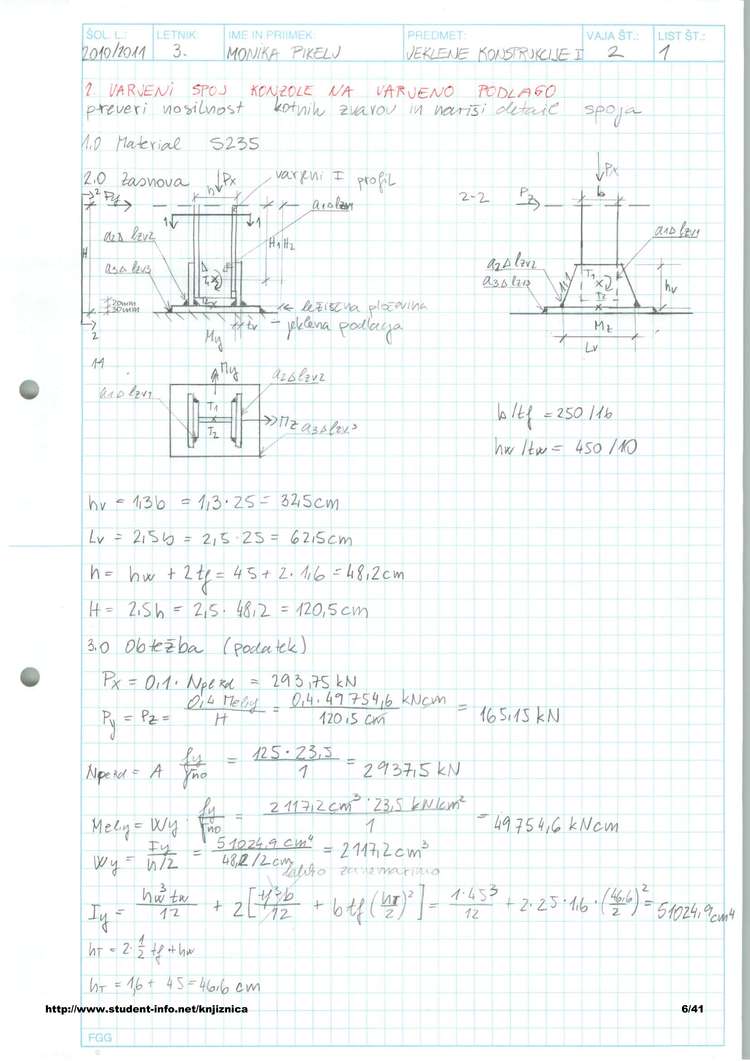 ŠOL. L.: LETNIK: IME IN PRIIMEK: PREDMET: VAJA ŠT.: LIST ŠT.:
2010/2011 3. MONIKA PIKELJ JEKLENE KONSTRUKCIJE I 2 1
2. VARJENI SPOJ KONZOLE NA VARJENO PODLAGO
preveri nosilnost kotnih zvarov in nariši detail spoja
1.0 Material S235
2.0 Zasnova
Px
varjeni I profil
h
Py
2
1 1
a1⊿lzv1
a2⊿lzv2
a3⊿lzv3
H
H1 H2
T1
T2
20mm
30mm
ležiščna pločevina
jeklena podlaga
tv
My
2
2-2
Pz
Px
b
a1⊿lzv1
a2⊿lzv2
a3⊿lzv3
T1
T2
hv
Mz
Lv
1-1
My
a1⊿lzv1
a2⊿lzv2
T1
T2
Mz
a3⊿lzv3
b/tf = 250/16
hw/tw = 450/10
hv = 1,3b = 1,3·25 = 32,5cm
Lv = 2,5b = 2,5·25 = 62,5cm
h = hw + 2tf = 45 + 2·1,6 = 48,2cm
H = 2,5h = 2,5·48,2 = 120,5cm
3.0 Obtežba (podatek)
Px = 0,1·Nperd = 293,75 kN
Py = Pz = 0,4 Mely / H = 0,4·49754,6 kNcm / 120,5 cm = 165,15 kN
Nperd = A fy/γmo = 125·23,5 / 1 = 2937,5 kN
Mely = Wy · fy/γmo = 2117,2cm³·23,5 kN/cm² / 1 = 49754,6 kNcm
Wy = Iy / h/2 = 51024,9 cm⁴ / 48,2/2 cm = 2117,2cm³
lahko zanemarimo
Iy = hw³tw/12 + 2[tf³b/12 + btf(hT/2)²] = 1·45³/12 + 2·25·1,6·(46,6/2)² = 51024,9cm⁴
hT = 2·1/2 tf + hw
hT = 1,6 + 45 = 46,6 cm
http://www.student-info.net/knjiznica 6/41
FGG